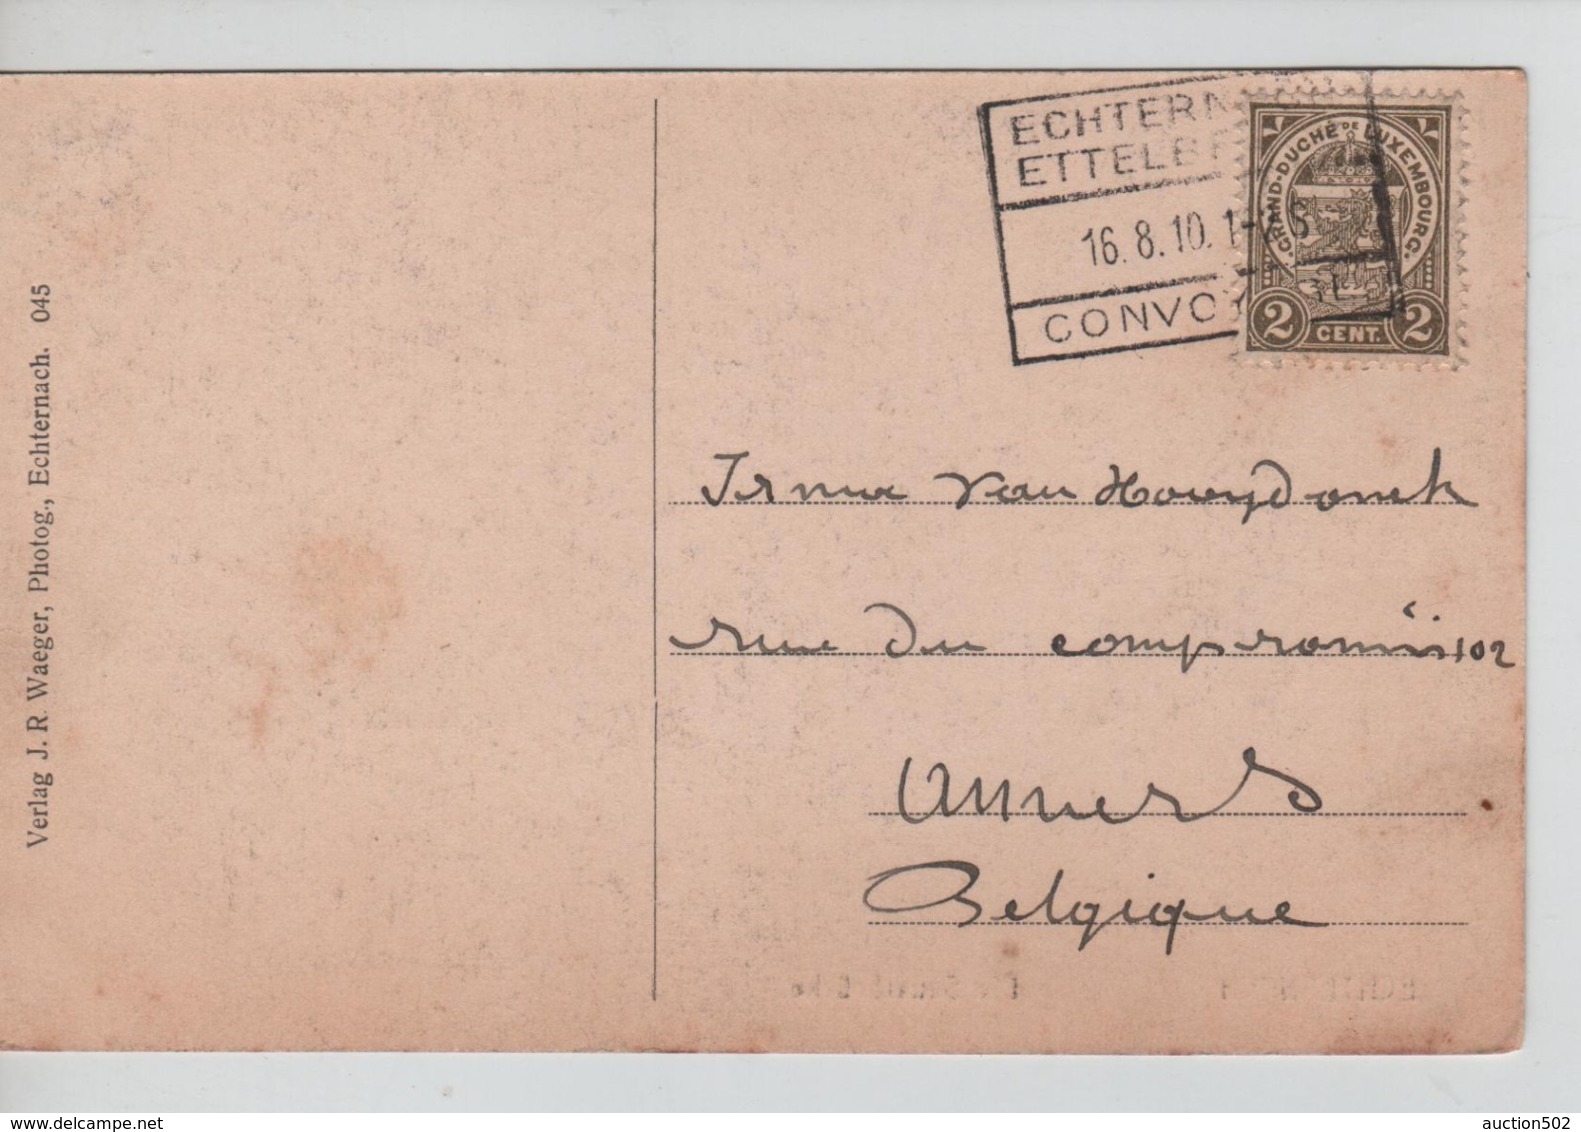 ECHTERN
ETTELB
16.8.10. 1-
CONVO
GRAND-DUCHÉ DE LUXEMBOURG.
2 CENT. 2
Verlag J. R. Waeger, Photog., Echternach. 045
Irma Van Hoeydonck
rue du compromis 102
Anvers
Belgique
auction502